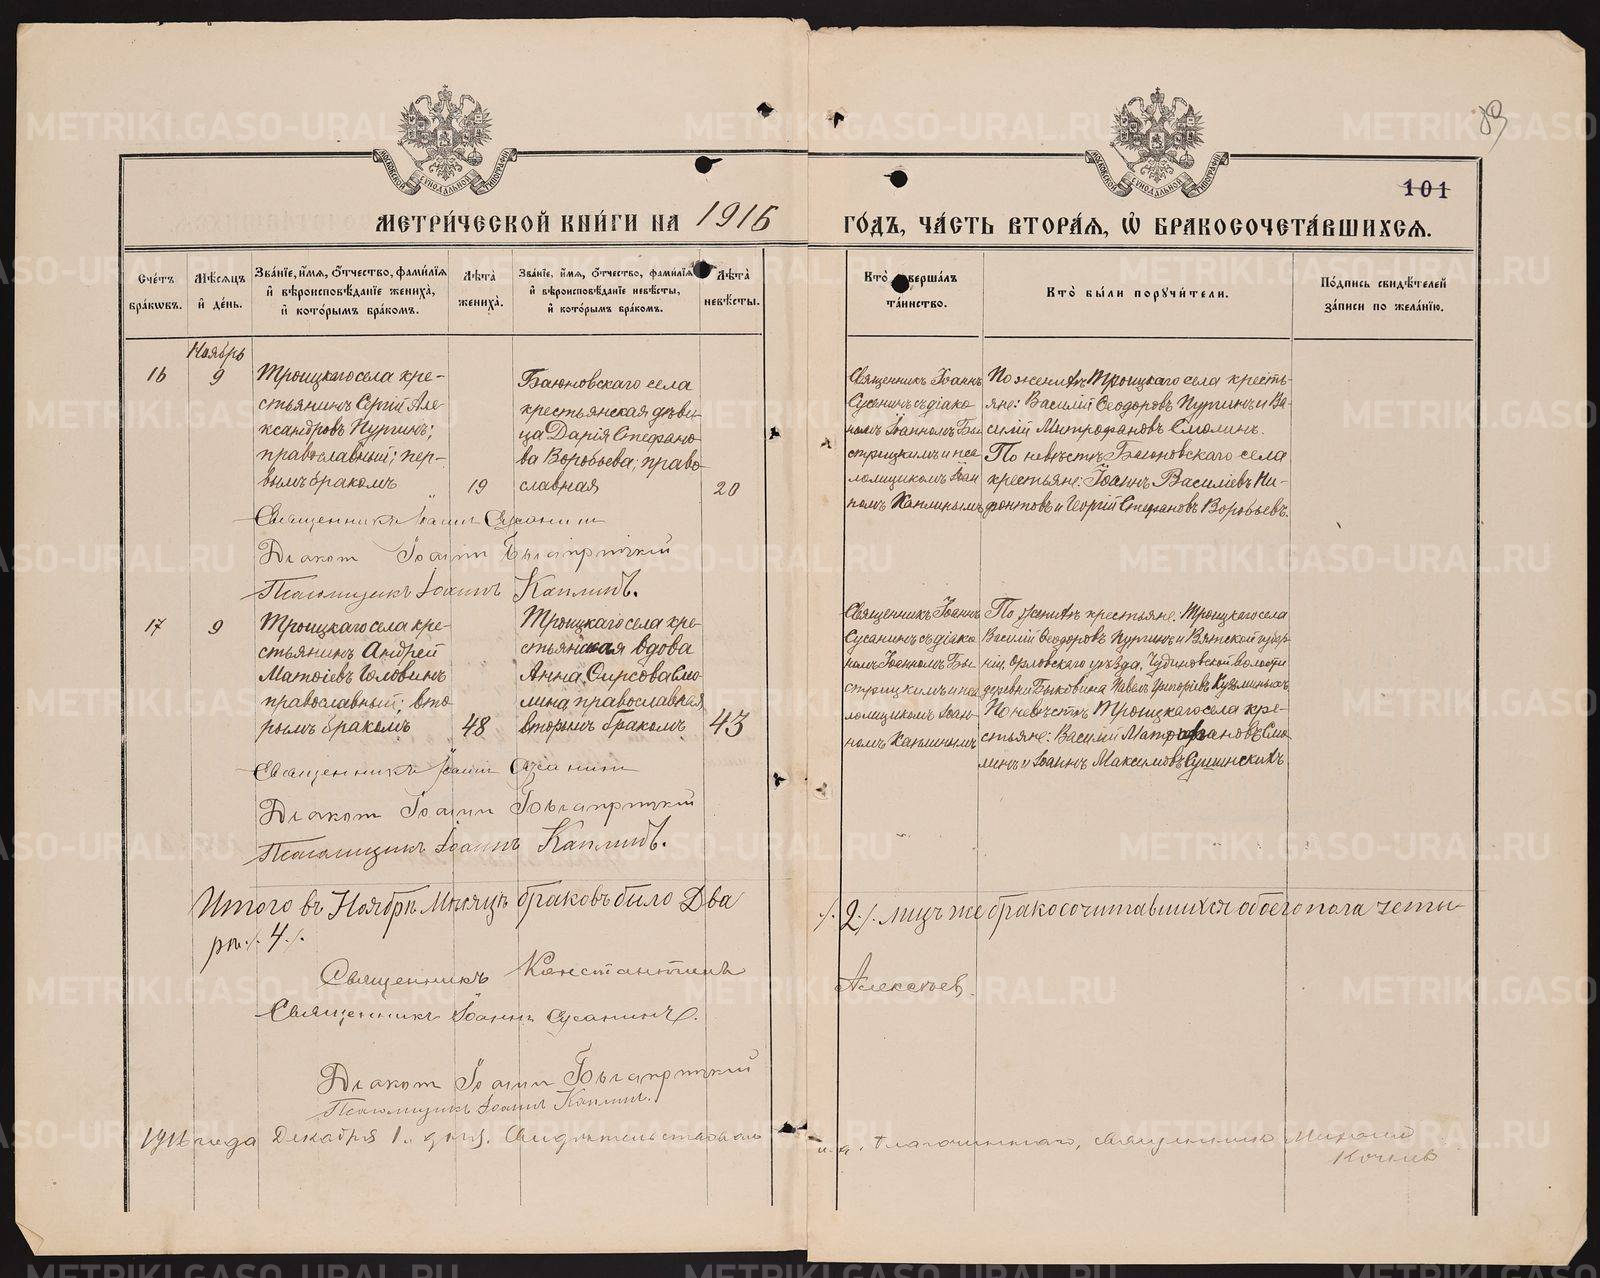 89
101
МЕТРИ́ЧЕСКОЙ КНИ́ГИ НА 1916 ГО́ДЪ, ЧА́СТЬ ВТОРА́Я, Ѽ БРАКОСОЧЕТА́ВШИХСЯ.
Сче́тъ бра́кωвъ.
Мѣ́сяцъ и҆ де́нь.
Зва́нїе, и҆́мя, ѻ҆́тчество, фами́лїя и҆ вѣроисповѣ́данїе жениха̀, и҆ кото́рымъ бра́комъ.
Лѣ́та жениха̀.
Зва́нїе, и҆́мя, ѻ҆́тчество, фами́лїя и҆ вѣроисповѣ́данїе невѣ́сты, и҆ кото́рымъ бра́комъ.
Лѣ́та невѣ́сты.
Кто̀ соверша́лъ та́инство.
Кто̀ бы́ли порꙋчи́тели.
По́дпись свидѣ́телей за́писи по жела́нїю.
Ноябрь
16
9
Троицкаго села кре-
стьянинъ Сергій Але-
ксандровъ Пургинъ;
православный; пер-
вымъ бракомъ
19
Баюновскаго села
крестьянская дѣви-
ца Дарія Стефано-
ва Воробьева; право-
славная
20
Священникъ Іоаннъ
Сусанинъ съ діако-
номъ Іоанномъ Бы-
стрицкимъ и пса-
ломщикомъ Іоан-
номъ Каплинымъ
По женихѣ Троицкаго села кресть-
яне: Василій Ѳеодоровъ Пургинъ и Ва-
силій Митрофановъ Смолинъ.
По невѣстѣ Баюновскаго села
крестьяне: Іоаннъ Василіевъ Ни-
фонтовъ и Георгій Стефановъ Воробьевъ.
Священникъ Іоаннъ Сусанинъ
Діаконъ Іоаннъ Быстрицкій
Псаломщикъ Іоаннъ Каплинъ.
17
9
Троицкаго села кре-
стьянинъ Андрей
Матѳіевъ Головинъ
православный; вто-
рымъ бракомъ
48
Троицкаго села кре-
стьянская вдова
Анна Ѳирсова Смо-
лина, православная
вторымъ бракомъ
43
Священникъ Іоаннъ
Сусанинъ съ діако-
номъ Іоанномъ Бы-
стрицкимъ и пса-
ломщикомъ Іоан-
номъ Каплинымъ
По женихѣ крестьяне: Троицкаго села
Василій Ѳеодоровъ Пургинъ и Вятской губер-
ніи, Орловскаго уѣзда, Чудиновской волости
деревни Быковина Павелъ Григоріевъ Кузьминыхъ
По невѣстѣ Троицкаго села кре-
стьяне: Василій Митрофановъ Смо-
линъ и Іоаннъ Максимовъ Сушинскихъ
Священникъ Іоаннъ Сусанинъ
Діаконъ Іоаннъ Быстрицкій
Псаломщикъ Іоаннъ Каплинъ.
Итого въ Ноябрѣ Мѣсяцѣ браковъ было Два ./. 2 ./. лицъ же бракосочитавшихся обоего пола четы-
ре ./. 4 ./.
Священникъ Константинъ Алексѣев
Священникъ Іоаннъ Сусанинъ.
Діаконъ Іоаннъ Быстрицкій
Псаломщикъ Іоаннъ Каплинъ.
1916 года Декабря 1. дня. Свидѣтельствовалъ и. д. благочиннаго, священникъ
METRIKI.GASO-URAL.RU